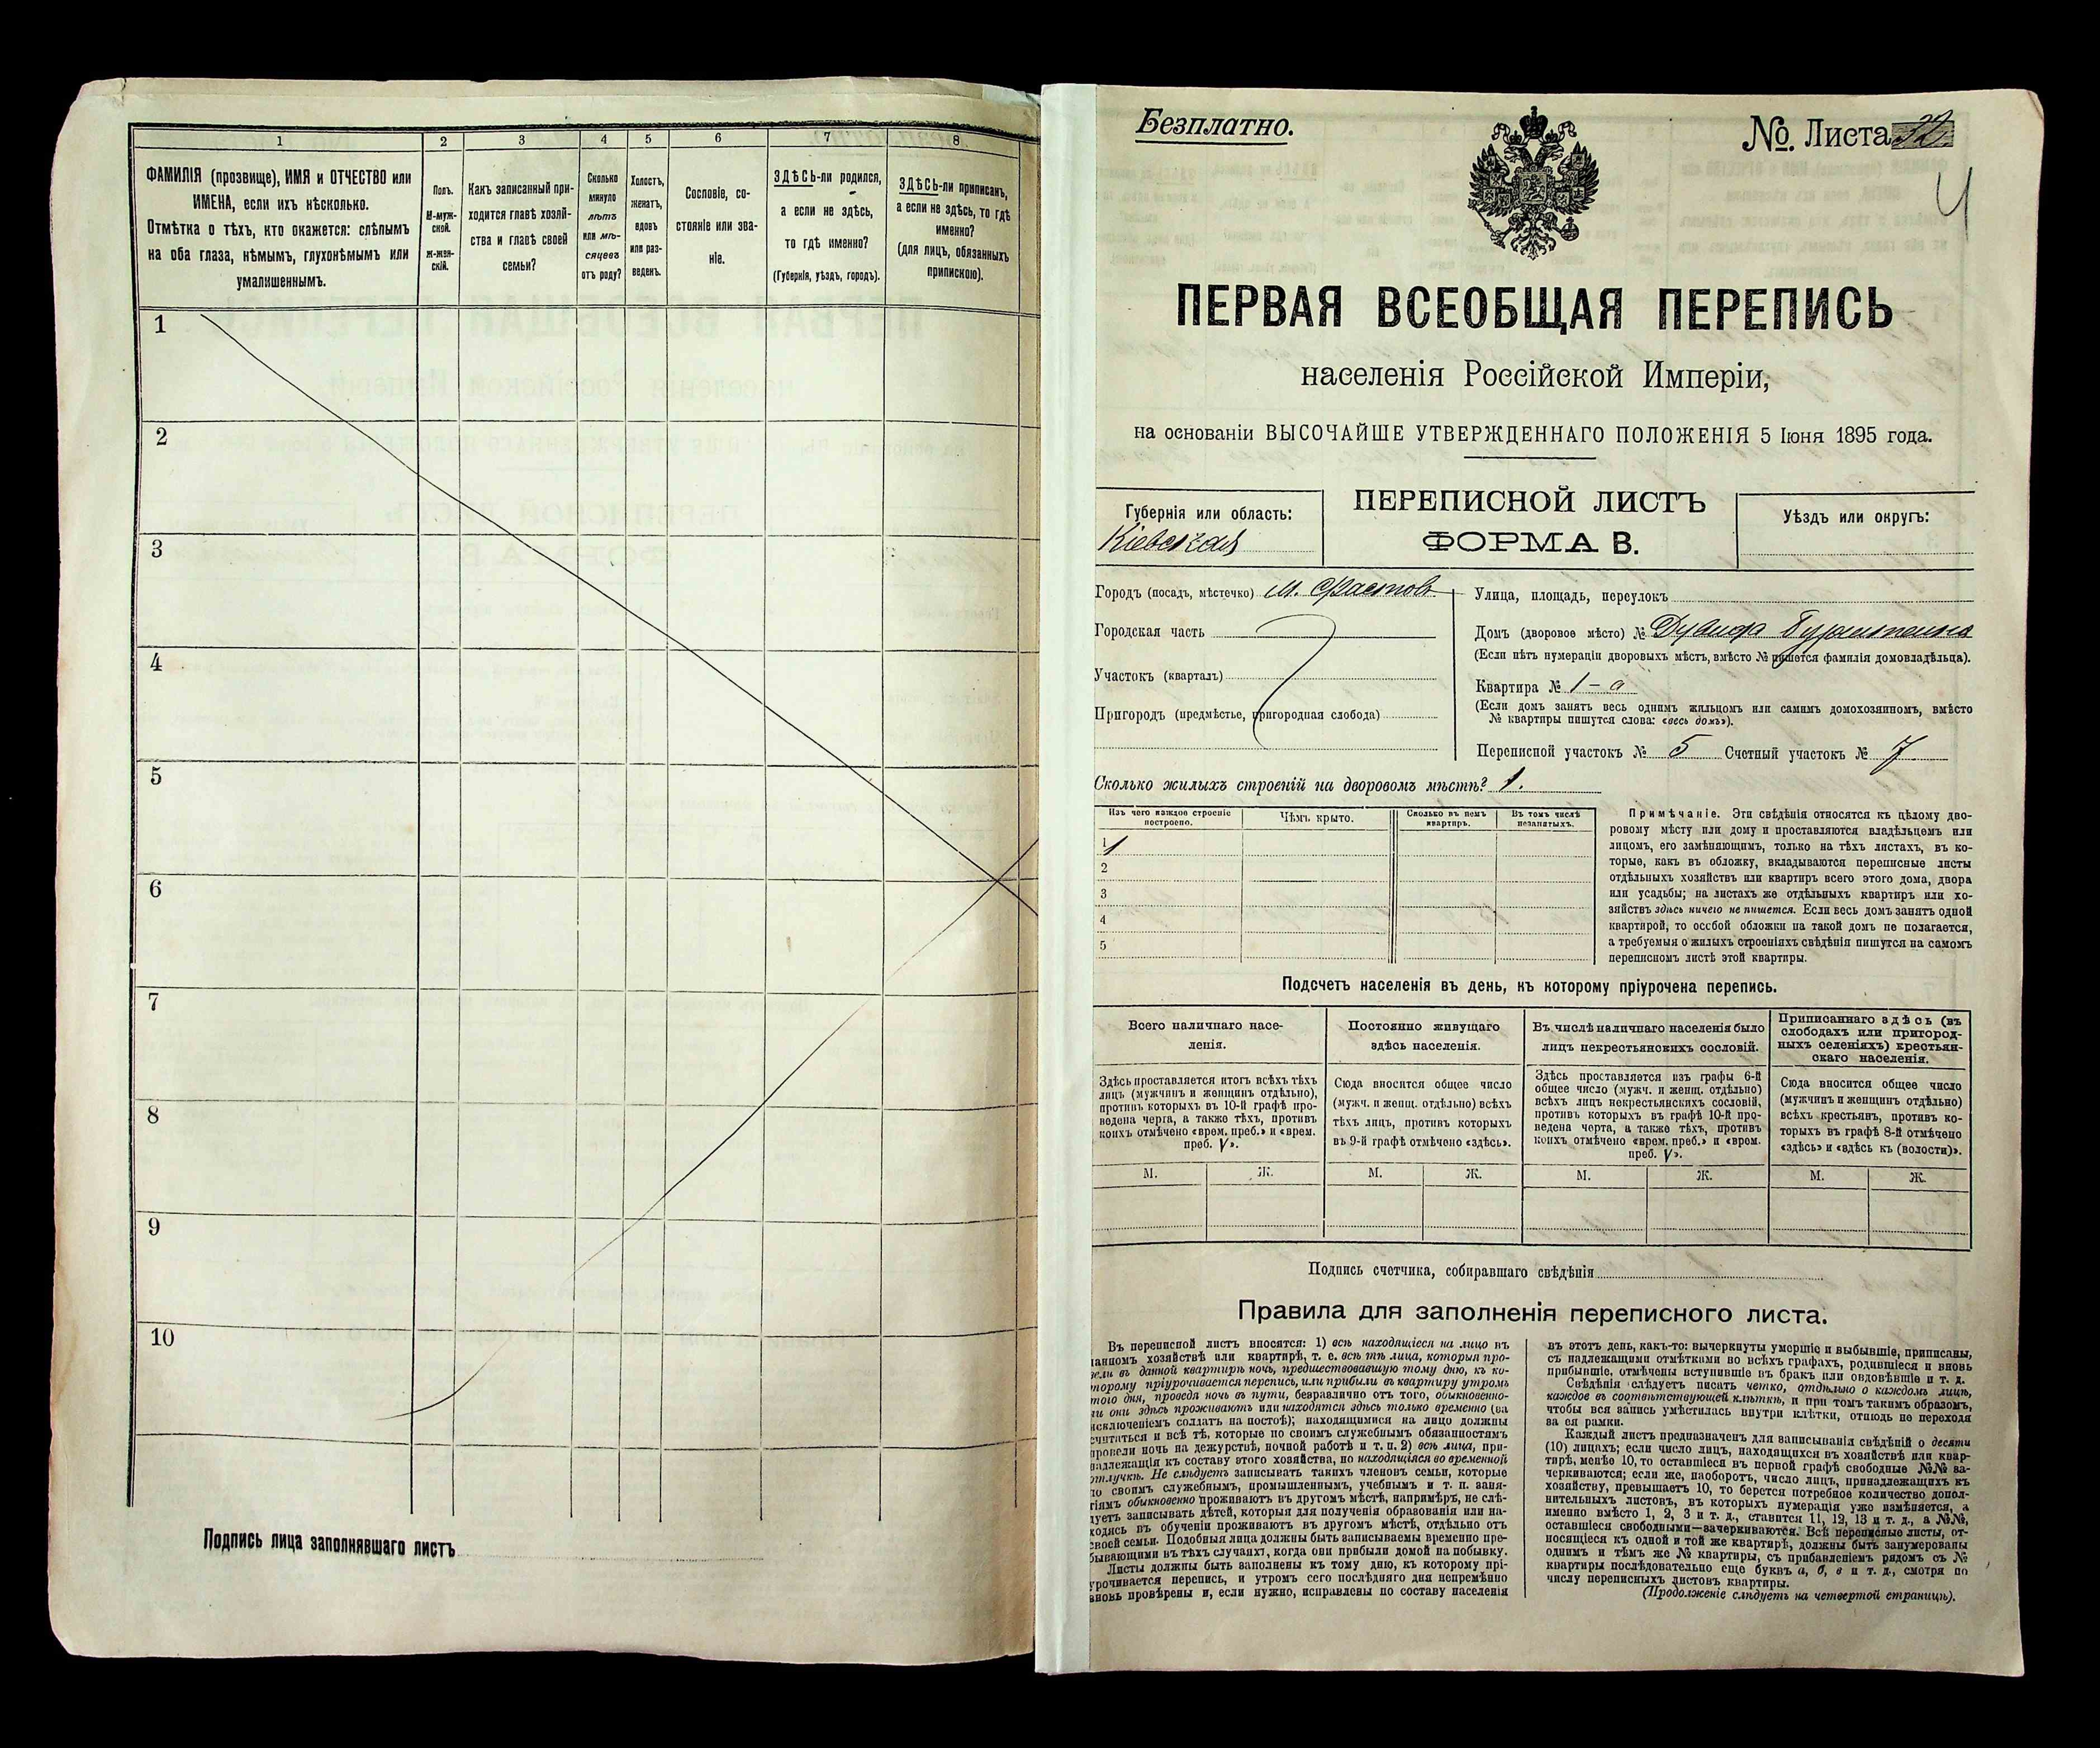 1 2 3 4 5 6 7 8
ФАМИЛІЯ (прозвище), ИМЯ и ОТЧЕСТВО или
ИМЕНА, если ихъ нѣсколько.
Отмѣтка о тѣхъ, кто окажется: слѣпымъ
на оба глаза, нѣмымъ, глухонѣмымъ или
умалишеннымъ.
Полъ.
М-муж-
ской.
Ж-жен-
скій.
Какъ записанный при-
ходится главѣ хозяй-
ства и главѣ своей
семьи?
Сколько
минуло
лѣтъ
или мѣ-
сяцевъ
отъ роду?
Холостъ,
женатъ,
вдовъ
или раз-
веденъ.
Сословіе, со-
стояніе или зва-
ніе.
ЗДѢСЬ-ли родился,
а если не здѣсь,
то гдѣ именно?
(Губернія, уѣздъ, городъ).
ЗДѢСЬ-ли приписанъ,
а если не здѣсь, то гдѣ
именно?
(для лицъ, обязанныхъ
припискою).
1
2
3
4
5
6
7
8
9
10
Подпись лица заполнявшаго листъ
Безплатно.
№. Листа 32.
4
ПЕРВАЯ ВСЕОБЩАЯ ПЕРЕПИСЬ
населенія Россійской Имперіи,
на основаніи ВЫСОЧАЙШЕ УТВЕРЖДЕННАГО ПОЛОЖЕНІЯ 5 Іюня 1895 года.
Губернія или область:
Кіевская
ПЕРЕПИСНОЙ ЛИСТЪ
ФОРМА В.
Уѣздъ или округъ:
Городъ (посадъ, мѣстечко) м. Фастовъ
Городская часть
Участокъ (кварталъ)
Пригородъ (предмѣстье, пригородная слобода)
Улица, площадь, переулокъ
Домъ (дворовое мѣсто) №
(Если нѣтъ нумераціи дворовыхъ мѣстъ, вмѣсто № пишется фамилія домовладѣльца).
Квартира № 1-а
(Если домъ занятъ весь однимъ жильцомъ или самимъ домохозяиномъ, вмѣсто
№ квартиры пишутся слова: «весь домъ»).
Переписной участокъ № 5 Счетный участокъ № 7
Сколько жилыхъ строеній на дворовомъ мѣстѣ? 1.
Изъ чего каждое строеніе
построено.
Чѣмъ крыто.
Сколько въ немъ
квартиръ.
Въ томъ числѣ
незанятыхъ.
1
2
3
4
5
Примѣчаніе. Эти свѣдѣнія относятся къ цѣлому дво-
ровому мѣсту или дому и проставляются владѣльцемъ или
лицомъ, его замѣняющимъ, только на тѣхъ листахъ, въ ко-
торые, какъ въ обложку, вкладываются переписные листы
отдѣльныхъ хозяйствъ или квартиръ всего этого дома, двора
или усадьбы; на листахъ же отдѣльныхъ квартиръ или хо-
зяйствъ здѣсь ничего не пишется. Если весь домъ занятъ одной
квартирой, то особой обложки на такой домъ не полагается,
а требуемыя о жилыхъ строеніяхъ свѣдѣнія пишутся на самомъ
переписномъ листѣ этой квартиры.
Подсчетъ населенія въ день, къ которому пріурочена перепись.
Всего наличнаго насе-
ленія.
Постоянно живущаго
здѣсь населенія.
Въ числѣ наличнаго населенія было
лицъ некрестьянскихъ сословій.
Приписаннаго здѣсь (въ
слободахъ или пригород-
ныхъ селеніяхъ) крестьян-
скаго населенія.
Здѣсь проставляется итогъ всѣхъ тѣхъ
лицъ (мужчинъ и женщинъ отдѣльно),
противъ которыхъ въ 10-й графѣ про-
ведена черта, а также тѣхъ, противъ
коихъ отмѣчено «врем. преб.» и «врем.
преб. V».
Сюда вносится общее число
(мужч. и женщ. отдѣльно) всѣхъ
тѣхъ лицъ, противъ которыхъ
въ 9-й графѣ отмѣчено «здѣсь».
Здѣсь проставляется изъ графы 6-й
общее число (мужч. и женщ. отдѣльно)
всѣхъ лицъ некрестьянскихъ сословій,
противъ которыхъ въ графѣ 10-й про-
ведена черта, а также тѣхъ, противъ
коихъ отмѣчено «врем. преб.» и «врем.
преб. V».
Сюда вносится общее число
(мужчинъ и женщинъ отдѣльно)
всѣхъ крестьянъ, противъ ко-
торыхъ въ графѣ 8-й отмѣчено
«здѣсь» и «здѣсь къ (волости)».
М. Ж. М. Ж. М. Ж. М. Ж.
Подпись счетчика, собиравшаго свѣдѣнія
Правила для заполненія переписного листа.
Въ переписной листъ вносятся: 1) всѣ находящіеся на лицо въ
данномъ хозяйствѣ или квартирѣ, т. е. всѣ тѣ лица, которыя про-
вели въ данной квартирѣ ночь, предшествовавшую тому дню, къ ко-
торому пріурочивается перепись, или прибыли въ квартиру утромъ
того дня, проведя ночь въ пути, безразлично отъ того, обыкновенно-
ли они здѣсь проживаютъ или находятся здѣсь только временно (за
исключеніемъ солдатъ на постоѣ); находящимися на лицо должны
считаться и всѣ тѣ, которые по своимъ служебнымъ обязанностямъ
провели ночь на дежурствѣ, ночной работѣ и т. п. 2) всѣ лица, при-
надлежащія къ составу этого хозяйства, но находящіяся во временной
отлучкѣ. Не слѣдуетъ записывать такихъ членовъ семьи, которые
по своимъ служебнымъ, промышленнымъ, учебнымъ и т. п. заня-
тіямъ обыкновенно проживаютъ въ другомъ мѣстѣ, напримѣръ, не слѣ-
дуетъ записывать дѣтей, которыя для полученія образованія или на-
ходясь въ обученіи проживаютъ въ другомъ мѣстѣ, отдѣльно отъ
своей семьи. Подобныя лица должны быть записываемы временно пре-
бывающими въ тѣхъ случаяхъ, когда они прибыли домой на побывку.
Листы должны быть заполнены къ тому дню, къ которому прі-
урочивается перепись, и утромъ сего послѣдняго дня непремѣнно
вновь провѣрены и, если нужно, исправлены по составу населенія
въ этотъ день, какъ-то: вычеркнуты умершіе и выбывшіе, приписаны,
съ надлежащими отмѣтками во всѣхъ графахъ, родившіеся и вновь
прибывшіе, отмѣчены вступившіе въ бракъ или овдовѣвшіе и т. д.
Свѣдѣнія слѣдуетъ писать четко, отдѣльно о каждомъ лицѣ,
каждое въ соотвѣтствующей клѣткѣ, и при томъ такимъ образомъ,
чтобы вся запись умѣстилась внутри клѣтки, отнюдь не переходя
за ея рамки.
Каждый листъ предназначенъ для записыванія свѣдѣній о десяти
(10) лицахъ; если число лицъ, находящихся въ хозяйствѣ или квар-
тирѣ, менѣе 10, то оставшіеся въ первой графѣ свободные №№ за-
черкиваются; если же, наоборотъ, число лицъ, принадлежащихъ къ
хозяйству, превышаетъ 10, то берется потребное количество допол-
нительныхъ листовъ, въ которыхъ нумерація уже измѣняется, а
именно вмѣсто 1, 2, 3 и т. д., ставится 11, 12, 13 и т. д., а №№,
оставшіеся свободными—зачеркиваются. Всѣ переписные листы, от-
носящіеся къ одной и той же квартирѣ, должны быть занумерованы
однимъ и тѣмъ же № квартиры, съ прибавленіемъ рядомъ съ №
квартиры послѣдовательно еще буквъ а, б, в и т. д., смотря по
числу переписныхъ листовъ квартиры.
(Продолженіе слѣдуетъ на четвертой страницѣ).